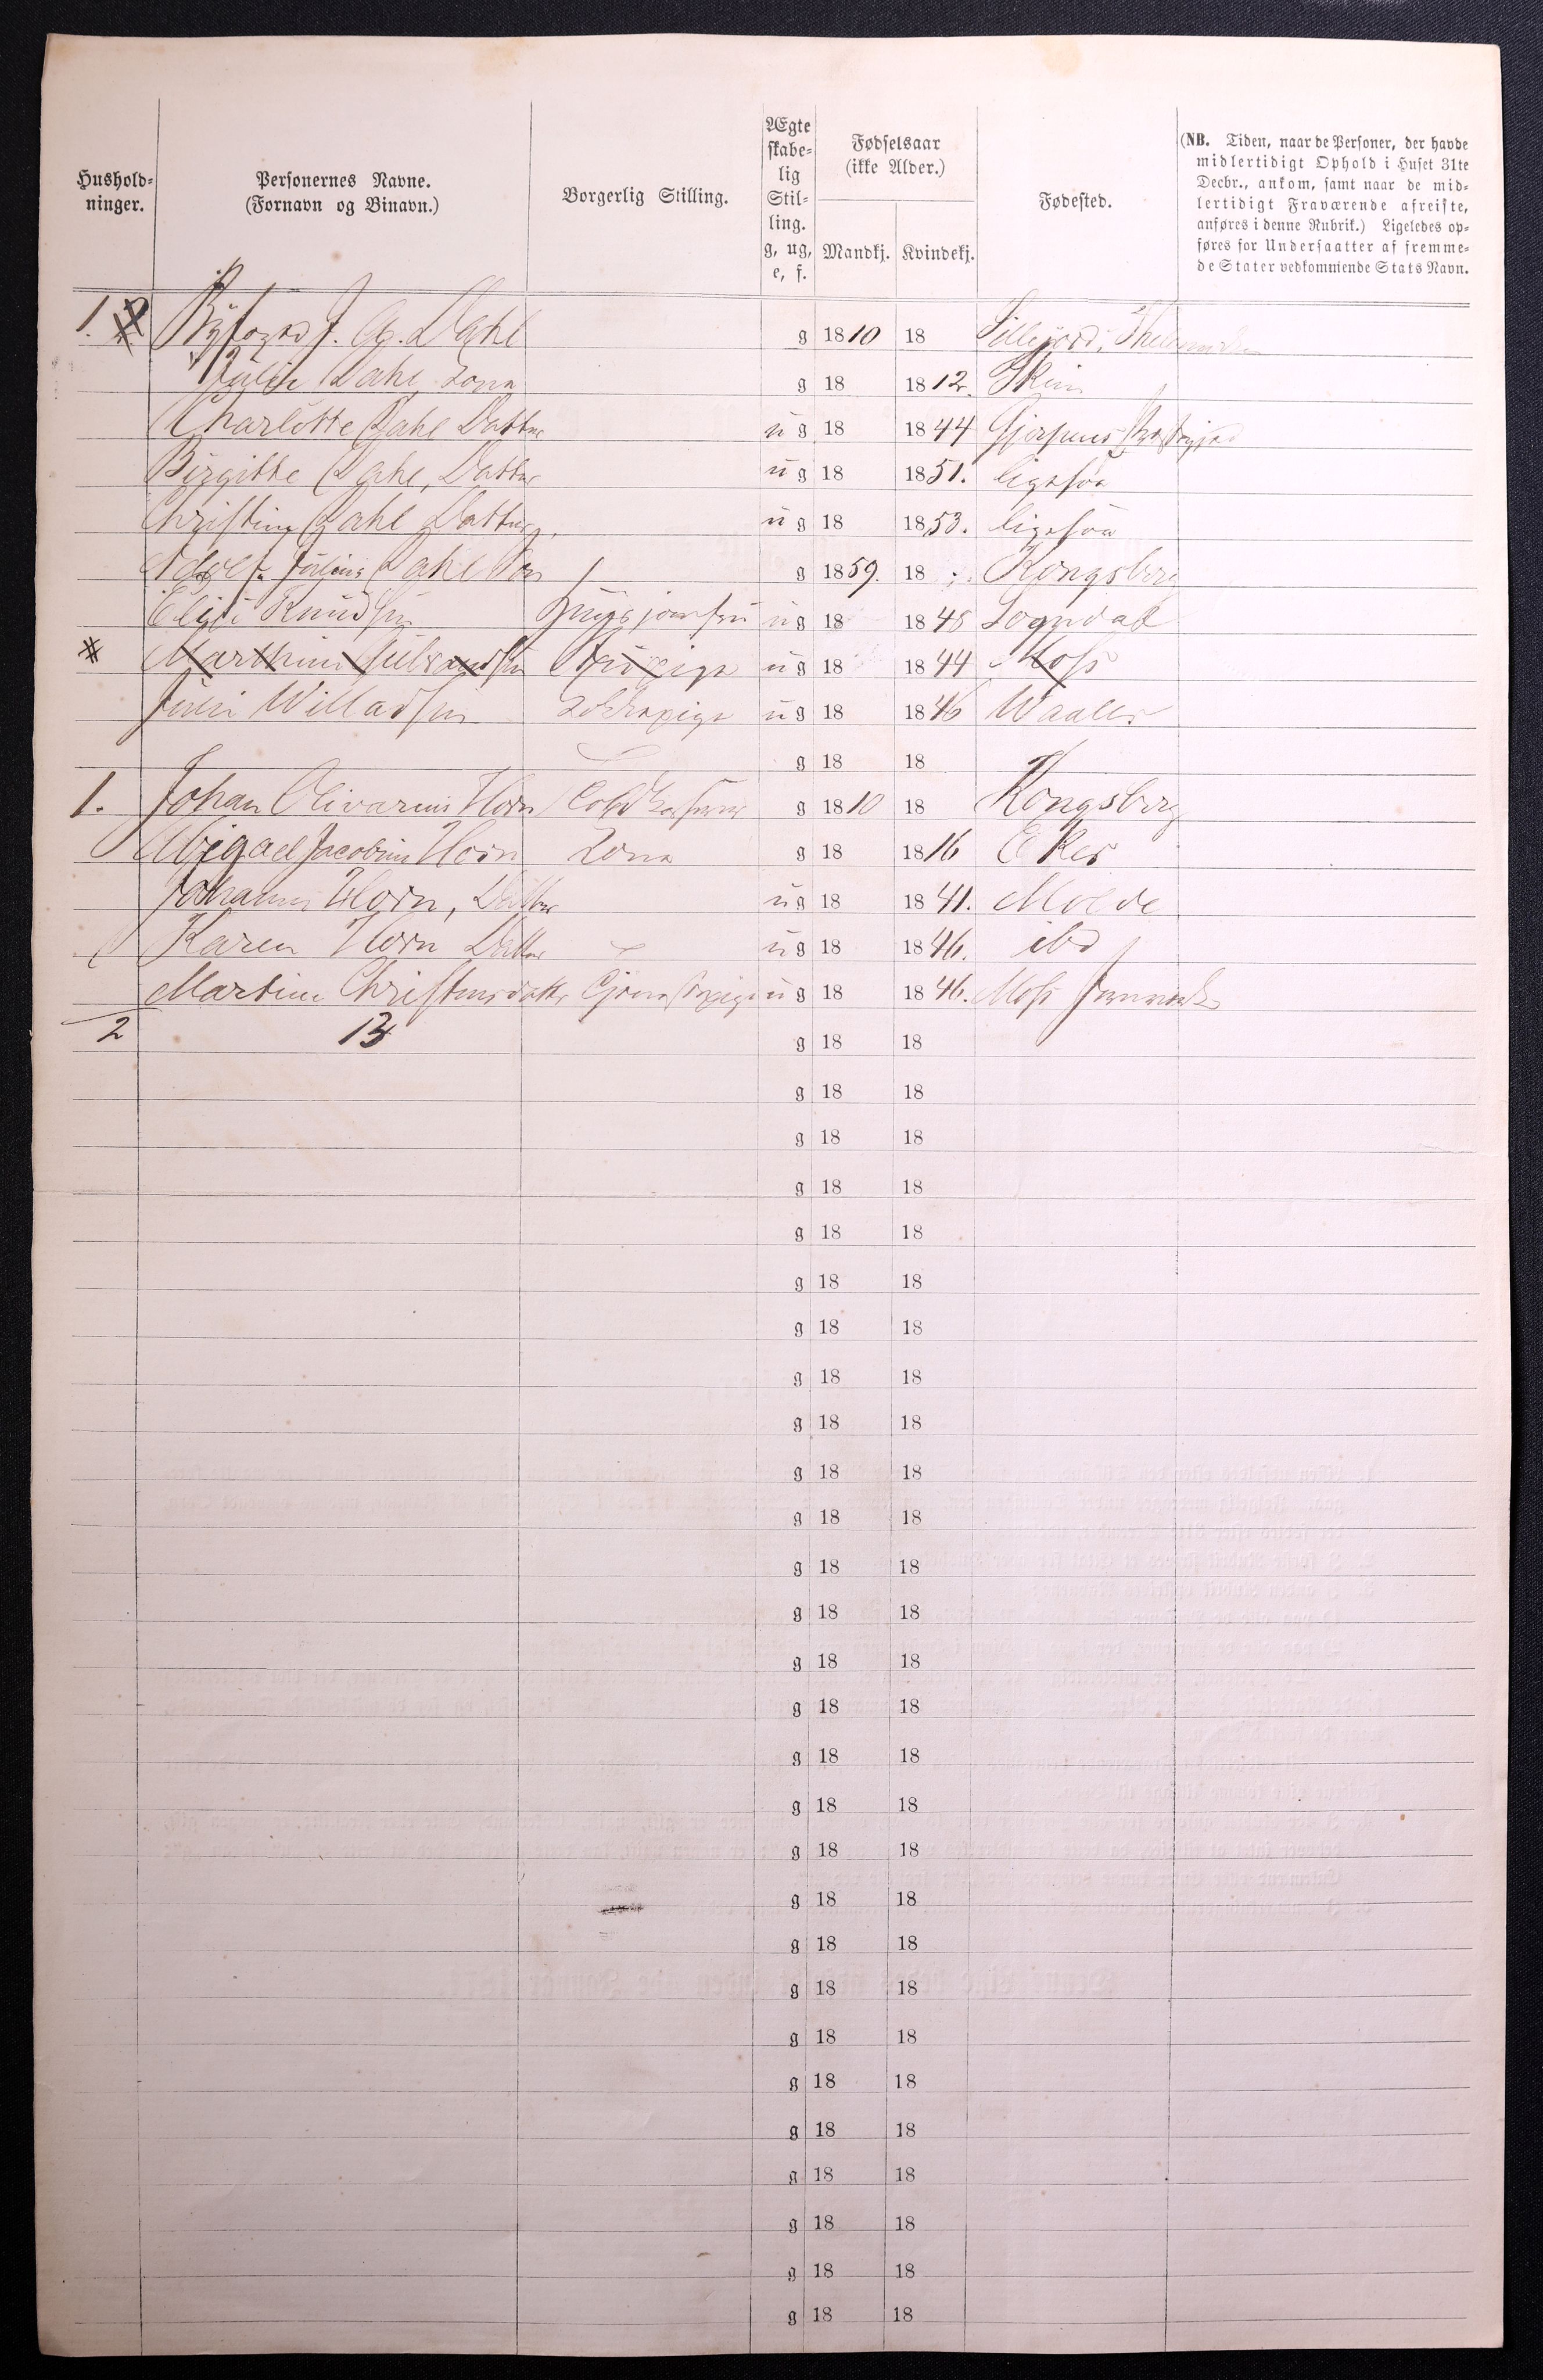 Hushold-
ninger.
Personernes Navne.
(Fornavn og Binavn.)
Borgerlig Stilling.
Ægte
skabe-
lig
Stil-
ling.
g, ug,
e, f.
Fødselsaar
(ikke Alder.)
Mandkj. Kvindekj.
Fødested.
(NB. Tiden, naar de Personer, der havde
midlertidigt Ophold i Huset 31te
Decbr., ankom, samt naar de mid-
lertidigt Fraværende afreiste,
anføres i denne Rubrik.) Ligeledes op-
føres for Undersaatter af fremme-
de Stater vedkommende Stats Navn.
1. Byfogd J. A. Dahl g 1810 18 Sillejord, Thelemarken
Julie Dahl, Kona g 18 1812. Skien
Charlotte Dahl Datter ug 18 1844 Gjerpens
Birgitte Dahl, Datter ug 18 1851. ligesaa
Christine Dahl Datter, ug 18 1853. ligesaa
Adolf Julius Dahl Søn g 1859. 18 Kongsberg
Elise Knudsen Huusjomfru ug 18 1848 Sogndal
Marthine Gulbrandsen ug 18 1844 Moss
Julie Willadsen Kokkepige ug 18 1846 Waaler
g 18 18
1. Johan Olivarius Horn Toldkasserer g 1810 18 Kongsberg
Abigael Jacobine Horn Kona g 18 1816 Eker
Johanne Horn, Datter ug 18 1841. Molde
Karen Horn Datter ug 18 1846. ibd
Martine Christensdatter Tjenestepige ug 18 1846. Moss Jernverk
2 13 g 18 18
g 18 18
g 18 18
g 18 18
g 18 18
g 18 18
g 18 18
g 18 18
g 18 18
g 18 18
g 18 18
g 18 18
g 18 18
g 18 18
g 18 18
g 18 18
g 18 18
g 18 18
g 18 18
g 18 18
g 18 18
g 18 18
g 18 18
g 18 18
g 18 18
g 18 18
g 18 18
g 18 18